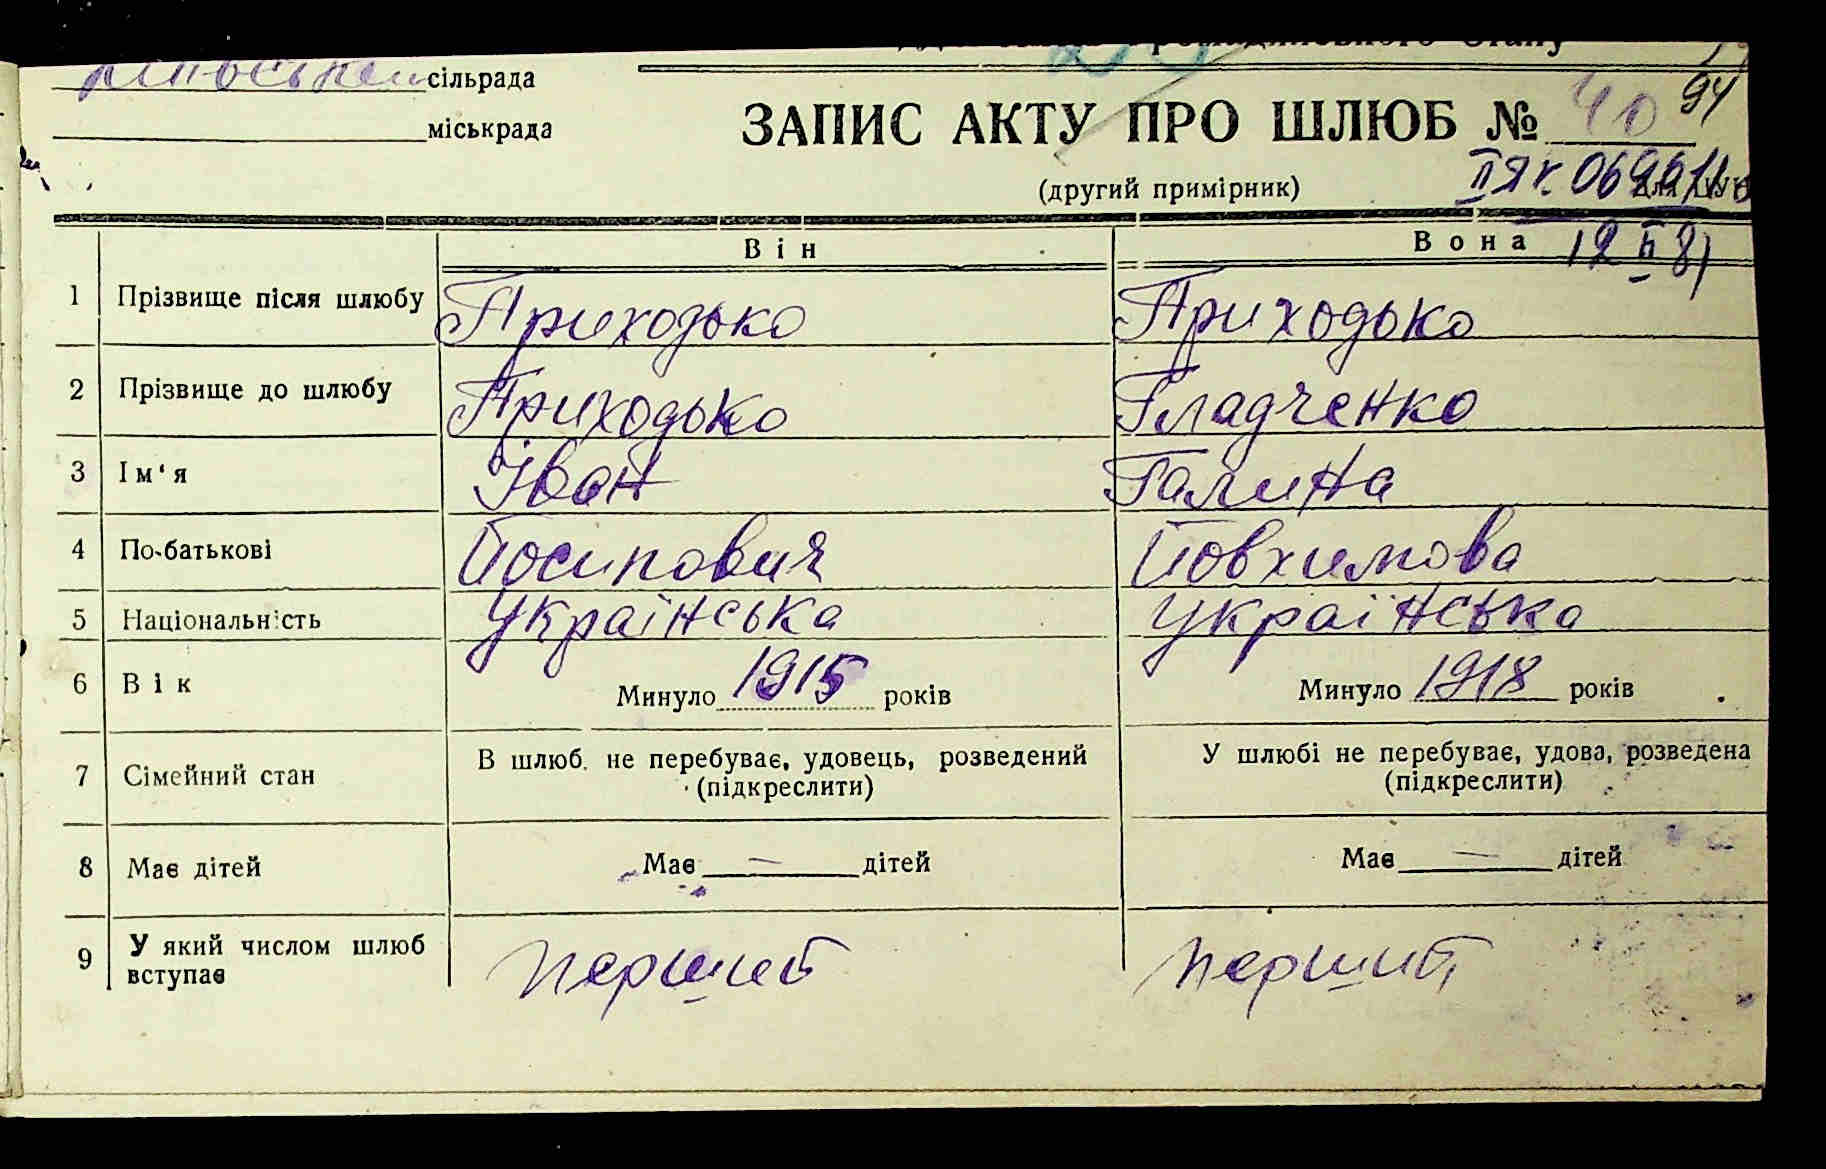 сільрада
міськрада
ЗАПИС АКТУ ПРО ШЛЮБ № 40 94
(другий примірник)
Він Вона 12 II 81
1 Прізвище після шлюбу Приходько Приходько
2 Прізвище до шлюбу Приходько Гладченко
3 Ім‘я Іван Галина
4 По-батькові Йосипович Йовхимова
5 Національність Українська Українська
6 Вік Минуло 1915 років Минуло 1918 років
7 Сімейний стан В шлюб. не перебуває, удовець, розведений У шлюбі не перебуває, удова, розведена
(підкреслити) (підкреслити)
8 Має дітей Має — дітей Має — дітей
9 У який числом шлюб вступає перший перший